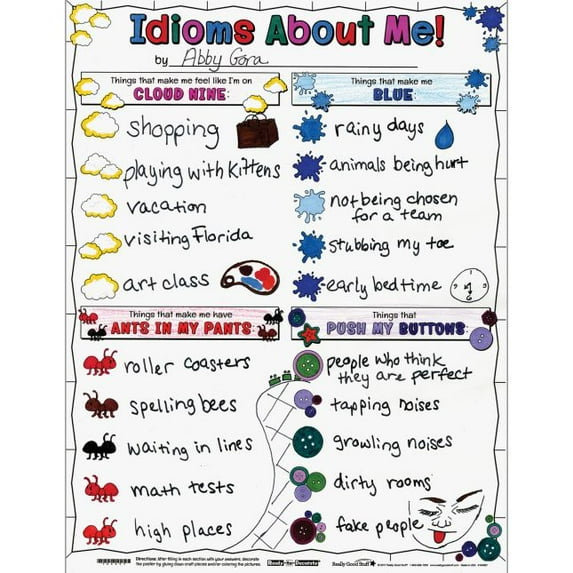 Idioms About Me!
by Abby Gora
Things that make me feel like I'm on
CLOUD NINE:
shopping
playing with kittens
vacation
visiting Florida
art class
Things that make me
BLUE:
rainy days
animals being hurt
not being chosen
for a team
stubbing my toe
early bedtime
Things that make me have
ANTS IN MY PANTS:
roller coasters
spelling bees
waiting in lines
math tests
high places
Things that
PUSH MY BUTTONS:
people who think
they are perfect
tapping noises
growling noises
dirty rooms
fake people
Directions: After filling in each section with your answers, decorate
the poster by gluing class craft pieces and/or coloring the pictures.
Ready-To-Decorate
Really Good Stuff